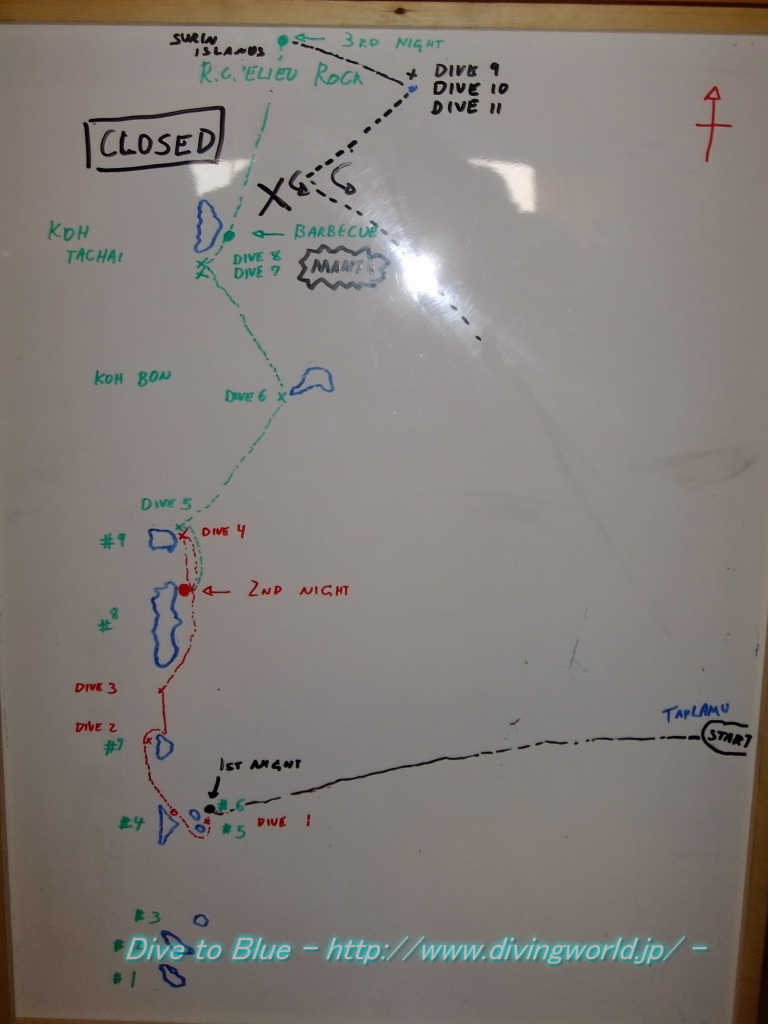 SURIN
ISLANDS
3RD NIGHT
R.C. ELIEU ROCK
DIVE 9
DIVE 10
DIVE 11
CLOSED
KOH
TACHAI
BARBECUE
DIVE 8
DIVE 7
MANTA
KOH BON
DIVE 6
DIVE 5
#9
DIVE 4
2ND NIGHT
#8
DIVE 3
DIVE 2
#7
TAPLAMU
START
1ST NIGHT
#6
#4
#5
DIVE 1
#3
#
Dive to Blue - http://www.divingworld.jp/ -
#1